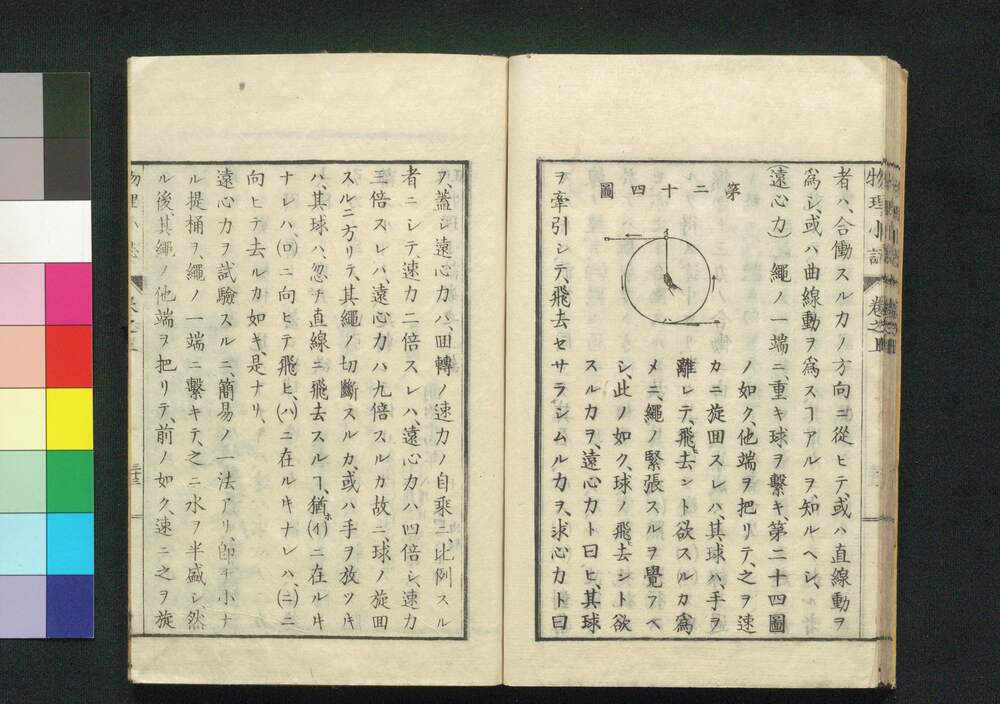 者ハ、合働スル力ノ方向ニ從ヒテ、或ハ直線動ヲ
爲シ、或ハ曲線動ヲ爲スヿアルヲ知ルヘシ、
(遠心力) 繩ノ一端ニ重キ球ヲ繫キ、第二十四圖
ノ如ク、他端ヲ把リテ、之ヲ速
カニ旋囬スレハ、其球ハ、手ヲ
離レテ、飛去ント欲スルカ爲
メニ、繩ノ緊張スルヲ覺フヘ
シ、此ノ如ク、球ノ飛去ント欲
スル力ヲ、遠心力ト曰ヒ、其球
第二十四圖
ヲ牽引シテ、飛去セサラシムル力ヲ、求心力ト曰
フ、蓋シ遠心力ハ、囬轉ノ速力ノ自乘ニ比例スル
者ニシテ、速力二倍スレハ、遠心力ハ四倍シ、速力
三倍スレハ、遠心力ハ九倍スルカ故ニ、球ノ旋囬
スルニ方リテ、其繩ノ切斷スルカ、或ハ手ヲ放ツ𪜈
ハ、其球ハ、忽チ直線ニ飛去スルヿ、猶ホ(イ)ニ在ル𪜈
ナレハ、(ロ)ニ向ヒテ飛ヒ、(ハ)ニ在ル𪜈ナレハ、(ニ)ニ
向ヒテ去ルカ如キ、是ナリ、
遠心力ヲ試驗スルニ、簡易ノ一法アリ、卽チ小ナ
ル提桶ヲ繩ノ一端ニ繫キテ、之ニ水ヲ半盛シ、然
ル後、其繩ノ他端ヲ把リテ、前ノ如ク、速ニ之ヲ旋